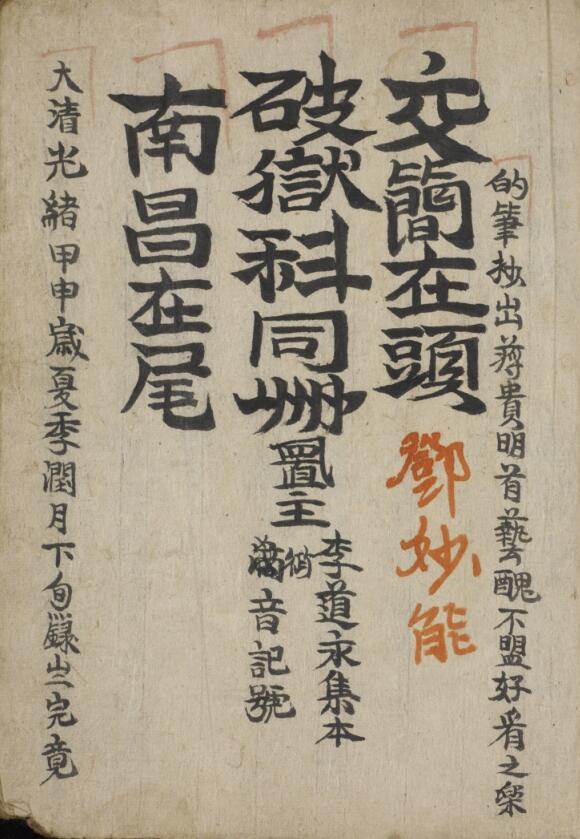 的筆抄出蒋貴明首藝醜不盟好看之榮
交簡在頭
鄧妙能
破獄科同卅
置主
李道永集本
音記號
南昌在尾
大清光緒甲申歲夏季潤月下旬錄完竟